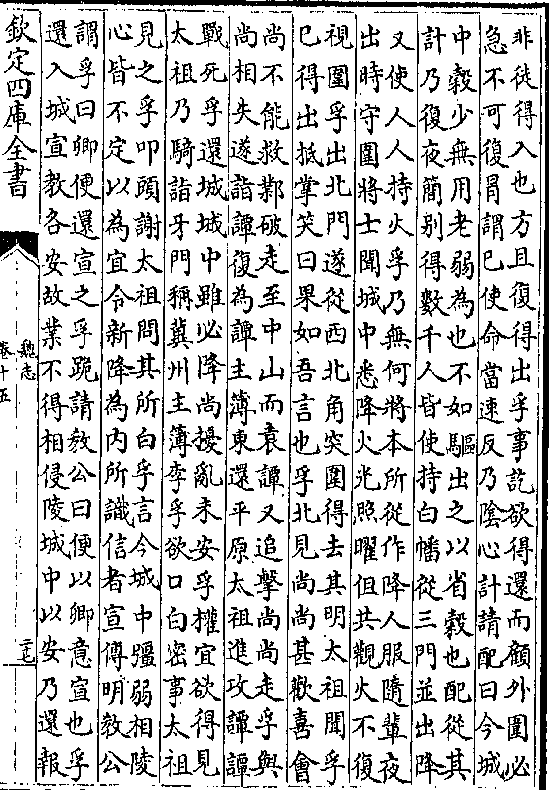 非徒得入也方且復得出孚事訖欲得還而顧外圍必
急不可復冐謂已使命當速反乃陰心計請配曰今城
中穀少無用老弱為也不如驅出之以省穀也配從其
計乃復夜簡别得數千人皆使持白幡從三門並出降
又使人人持火孚乃無何將本所從作降人服隨輩夜
出時守圍將士聞城中悉降火光照曜但共觀火不復
視圍孚出北門遂從西北角突圍得去其明太祖聞孚
已得出抵掌笑曰果如吾言也孚北見尚尚甚歡喜會
尚不能救鄴破走至中山而袁譚又追擊尚尚走孚與
尚相失遂詣譚復為譚主簿東還平原太祖進攻譚譚
戰死孚還城城中雖必降尚擾亂未安孚權宜欲得見
太祖乃騎詣牙門稱冀州主簿李孚欲口白密事太祖
見之孚叩頭謝太祖問其所白孚言今城中彊弱相陵
心皆不定以為宜令新降為内所識信者宣傳明教公
謂孚曰卿便還宣之孚跪請教公曰便以卿意宣也孚
還入城宣教各安故業不得相侵陵城中以安乃還報
欽定四庫全書
魏志
卷十五
二七